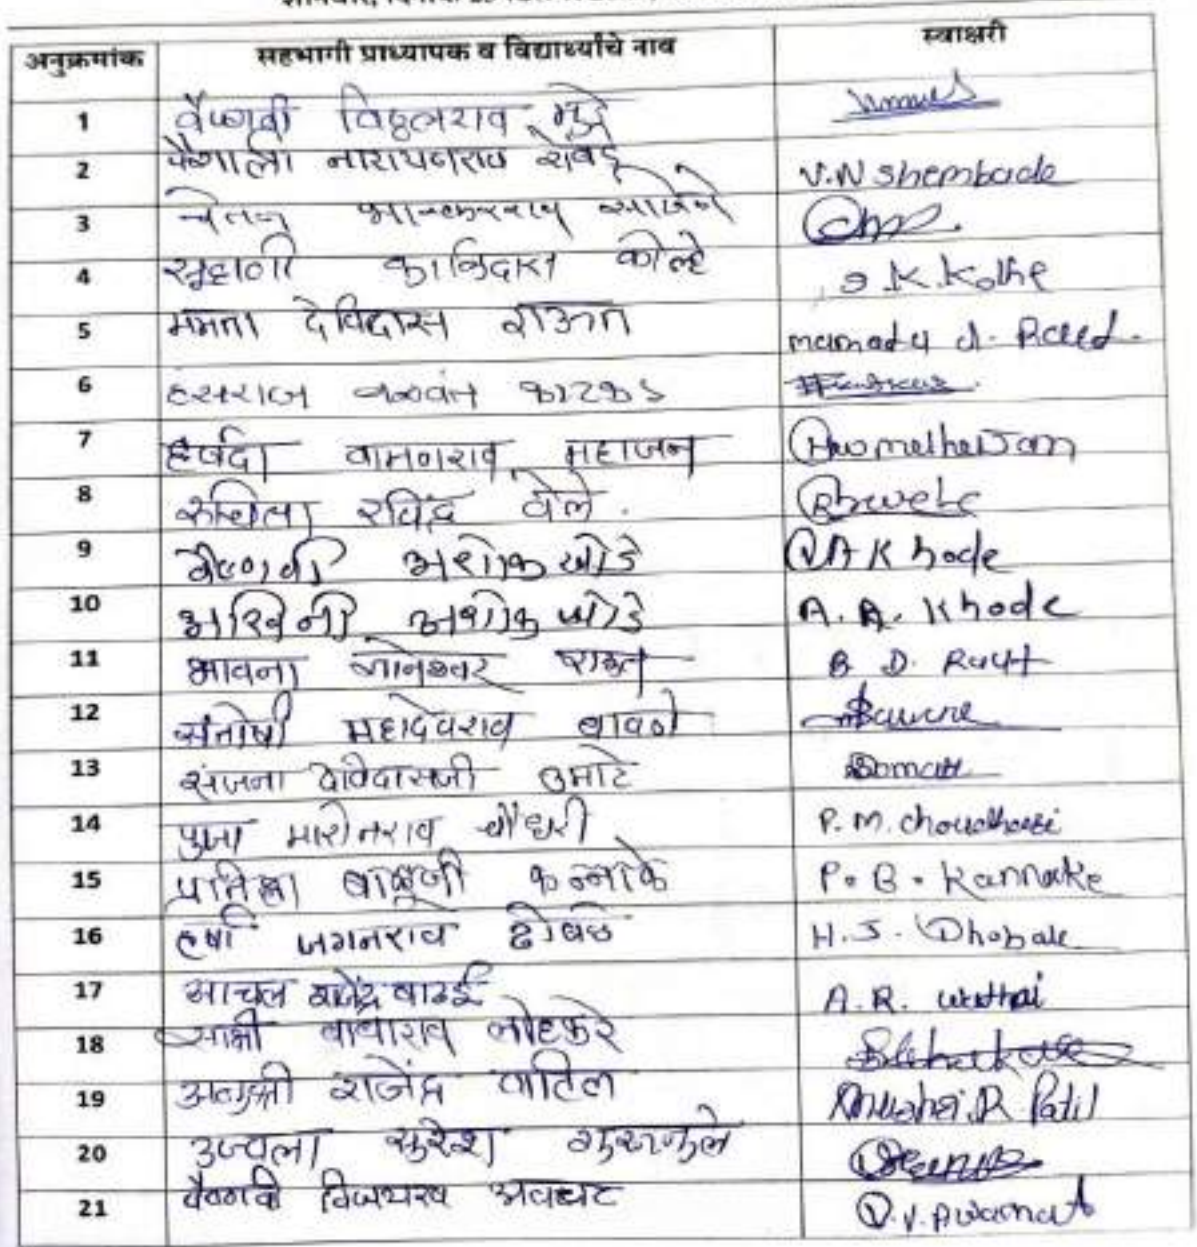 अनुक्रमांक सहभागी प्राध्यापक व विद्यार्थ्यांचे नाव स्वाक्षरी
1 वैष्णवी विठ्ठलराव मुद्रे
2 वैशाली नारायणराव शेंबडे V.N shembade
3 चेतन भास्करराव
4 सुहानी कालिदास कोल्हे S.K.Kolhe
5 ममता देविदास राऊत mamata d. Raut.
6 हंसराज बळवंत काटकर
7 हर्षदा वामनराव महाजन
8 रुचिता रविंद्र वेले.
9 वैष्णवी अशोक खोडे V A Khode
10 अश्विनी अशोक खोडे A. A. Khode
11 भावना ज्ञानेश्वर राऊत B. D. Raut
12 संतोषी महादेवराव बावने Bawane
13 संजना देविदासजी उमाटे
14 पुजा मारोतराव चौधरी P.M. choudhari
15 प्रतिक्षा बापूजी कन्नाके P. B. Kannake
16 हर्षा जगनराव ढोबळे H.J. Dhobale
17 आचल राजेंद्र वाठई A.R. wathai
18 साक्षी बाबाराव लोहकरे
19 अनुश्री राजेंद्र पाटिल Anushri R. Patil
20 उज्वला सुरेश
21 वैष्णवी विजयराव अवघट